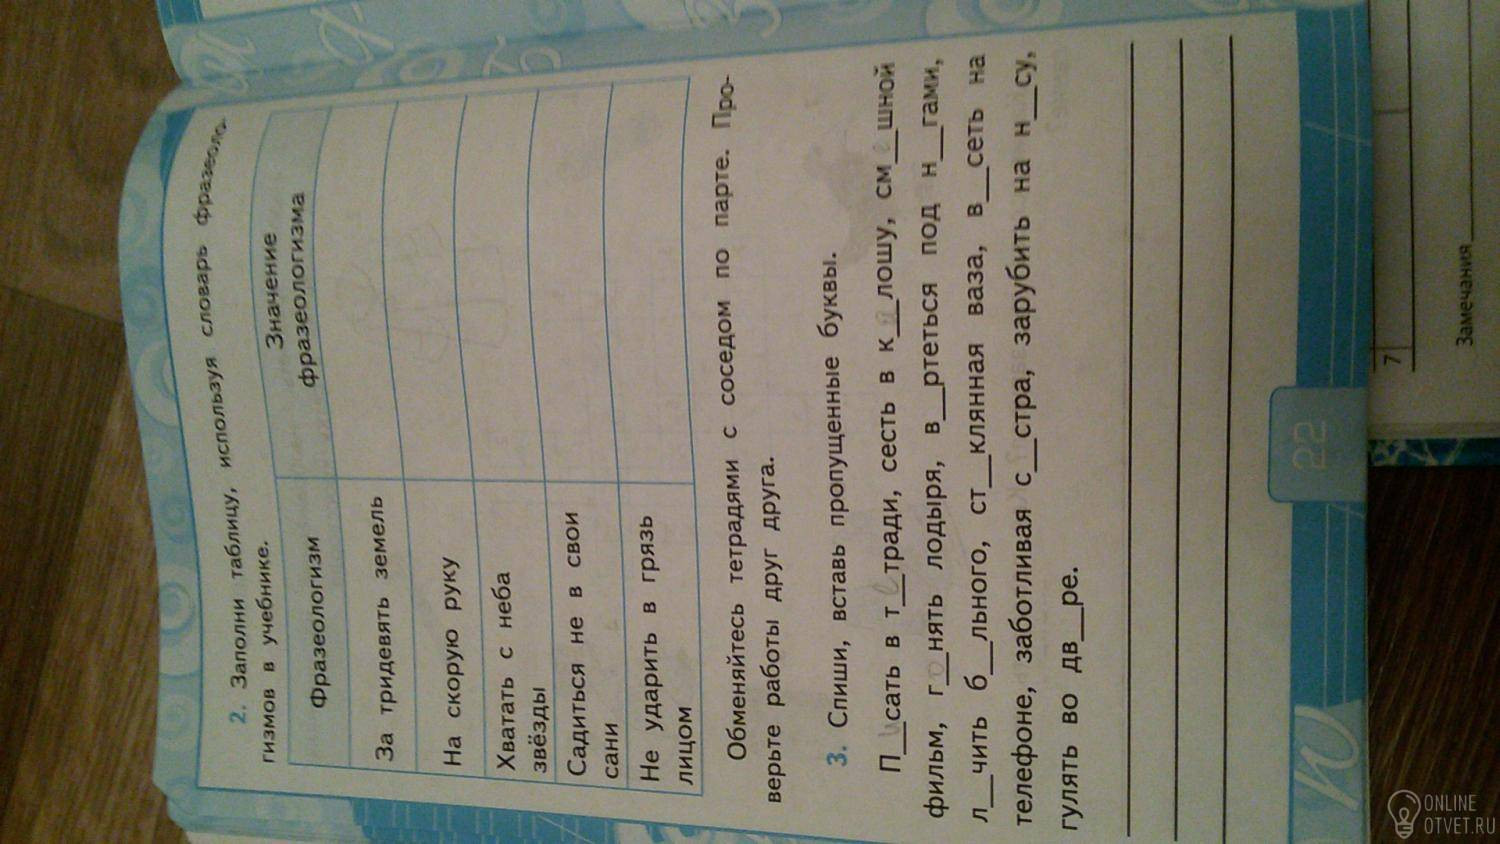 2. Заполни таблицу, используя словарь фразеоло-
гизмов в учебнике.
Фразеологизм
Значение
фразеологизма
За тридевять земель
На скорую руку
Хватать с неба
звёзды
Садиться не в свои
сани
Не ударить в грязь
лицом
Обменяйтесь тетрадями с соседом по парте. Про-
верьте работы друг друга.
3. Спиши, вставь пропущенные буквы.
П_и_сать в т_е_тради, сесть в к_а_лошу, см_е_шной
фильм, г_о_нять лодыря, в__ртеться под н__гами,
л__чить б__льного, ст__клянная ваза, в__сеть на
телефоне, заботливая с__стра, зарубить на н__су,
гулять во дв__ре.
22
7
Замечания
ONLINE
OTVET.RU